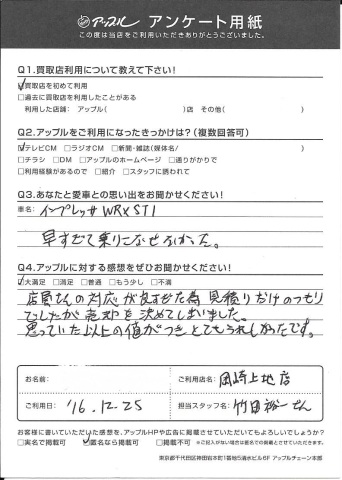 アップル アンケート用紙
この度は当店をご利用いただきありがとうございました。
Q1.買取店利用について教えて下さい!
☑買取店を初めて利用
□過去に買取店を利用したことがある
利用した店舗: アップル( )店 その他( )
Q2.アップルをご利用になったきっかけは?(複数回答可)
☑テレビCM □ラジオCM □新聞・雑誌(媒体名/ )
□チラシ □DM □アップルのホームページ □通りがかりで
□利用経験があるので □紹介 □スタッフに誘われて
Q3.あなたと愛車との思い出をお聞かせください!
車名: インプレッサWRX STI
早すぎて乗りこなせなかった。
Q4.アップルに対する感想をぜひお聞かせください!
☑大満足 □満足 □普通 □もう少し □不満
店員さんの対応が良すぎた為 見積りだけのつもり
でしたが売却を決めてしまいました。
思っていた以上の値がつきとてもうれしかったです。
お名前:
ご利用店名: 岡崎上地店
ご利用日: '16.12.25
担当スタッフ名: 竹田裕一さん
お客様に書いていただいた感想を、アップルHPや広告に掲載させていただいてもよろしいでしょうか?
□実名で掲載可 ☑匿名なら掲載可 □掲載不可 ※ご記入がない場合は匿名での掲載とさせていただきます。
東京都千代田区神田岩本町1番地5清水ビル6F アップルチェーン本部